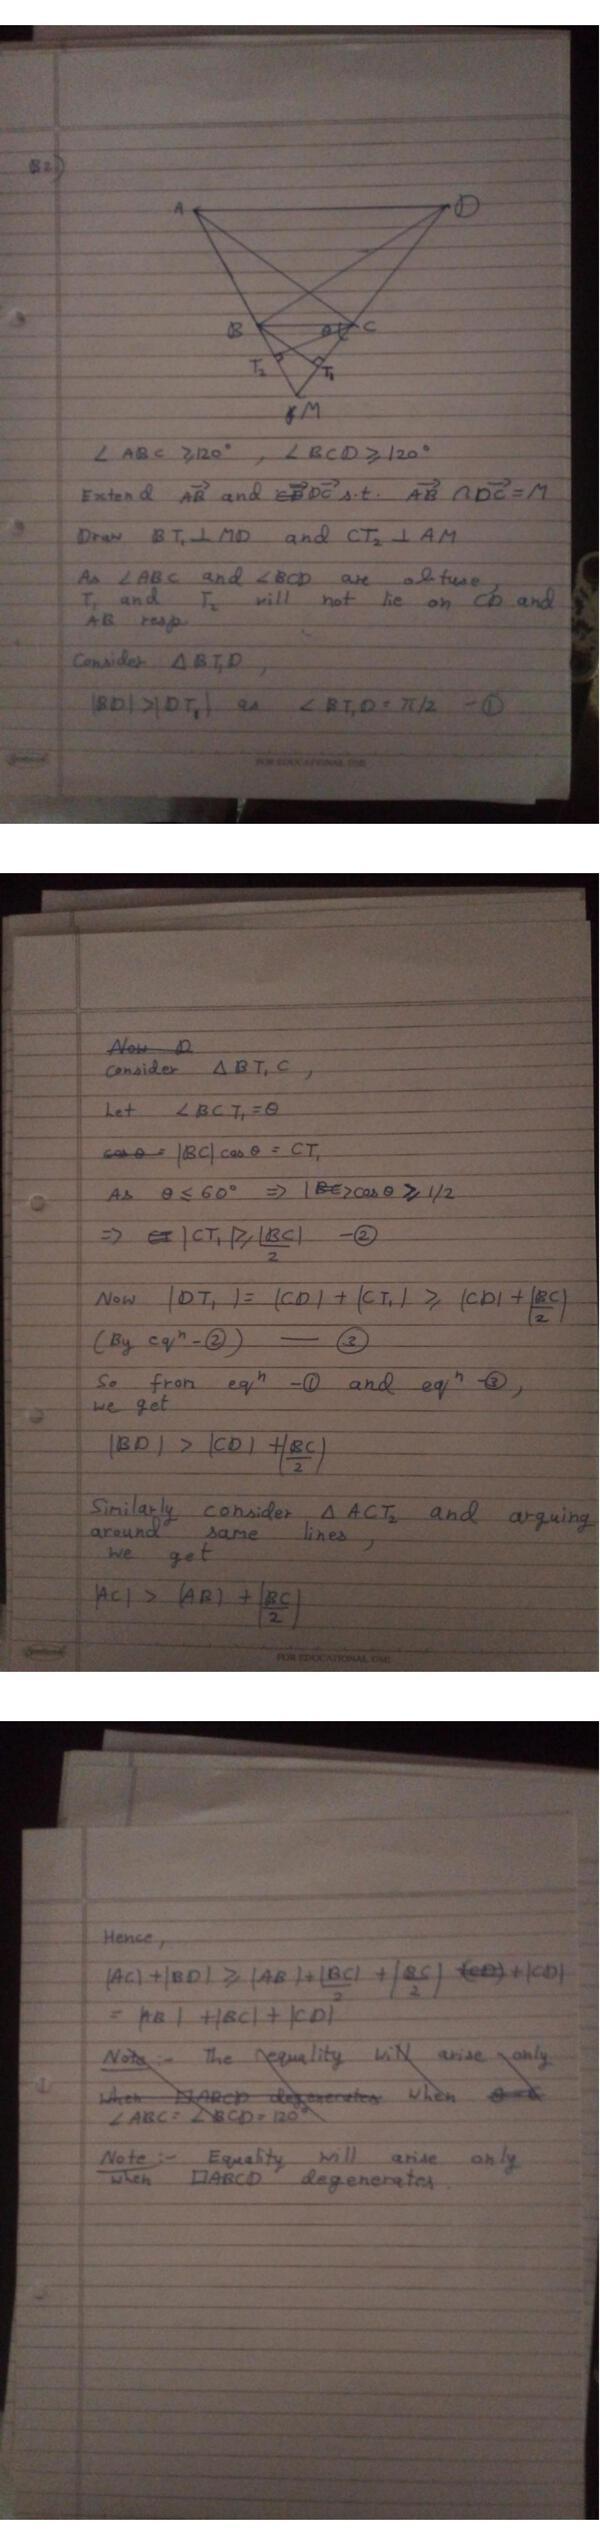 B2)
A
D
B
θ
C
T₂
T₁
M
∠ABC ≥ 120° , ∠BCD ≥ 120°
Extend AB⃗ and DC⃗ s.t. AB⃗ ∩ DC⃗ = M
Draw BT₁ ⊥ MD and CT₂ ⊥ AM
As ∠ABC and ∠BCD are obtuse,
T₁ and T₂ will not lie on CD and
AB resp.
Consider ΔBT₁D,
|BD| > |DT₁| as ∠BT₁D = π/2 - ①
FOR EDUCATIONAL USE
Now
Consider ΔBT₁C,
Let ∠BCT₁ = θ
cosθ = |BC| cosθ = CT₁
As θ ≤ 60° ⇒ cosθ ≥ 1/2
⇒ |CT₁| ≥ |BC|/2 - ②
Now |DT₁| = |CD| + |CT₁| ≥ |CD| + |BC|/2
(By eqⁿ - ②) — ③
So from eqⁿ - ① and eqⁿ - ③,
we get
|BD| > |CD| + |BC|/2
Similarly consider ΔACT₂ and arguing
around same lines,
we get
|AC| > |AB| + |BC|/2
FOR EDUCATIONAL USE
Hence,
|AC| + |BD| ≥ |AB| + |BC|/2 + |BC|/2 + |CD|
= |AB| + |BC| + |CD|
Note :- The equality will arise only
when □ABCD degenerates when
∠ABC = ∠BCD = 120°
Note :- Equality will arise only
when □ABCD degenerates.